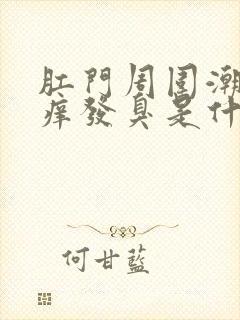 肛門周围潮
痒發臭是什
何甘藍